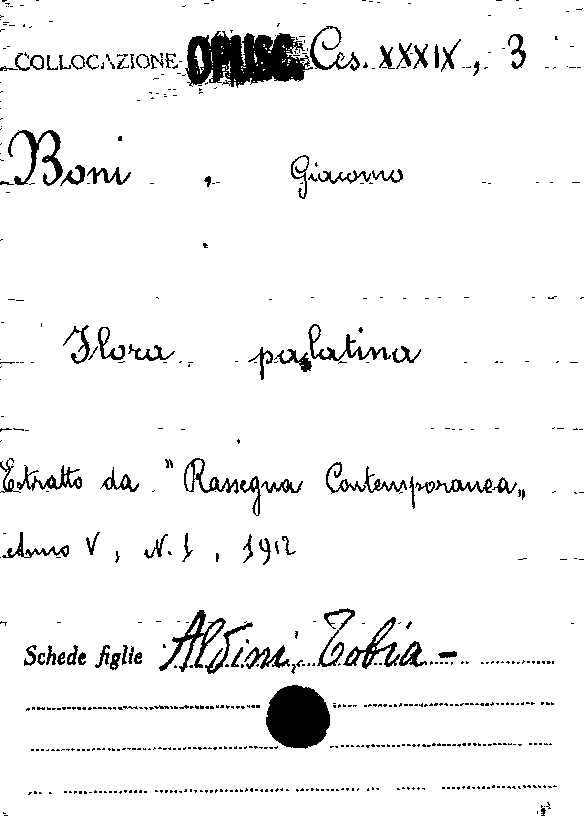 COLLOCAZIONE OPUSC. Ces. XXXIX, 3
Boni, Giacomo
Flora palatina
Estratto da "Rassegna Contemporanea„
Anno V, N. 1, 1912
Schede figlie Aldini, Tobia -